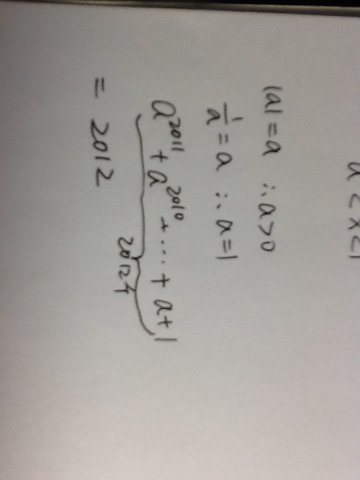 a < x < 1
|a| = a ∴ a > 0
1/a = a ∴ a = 1
a²⁰¹¹ + a²⁰¹⁰ + ... + a + 1
2012个
= 2012